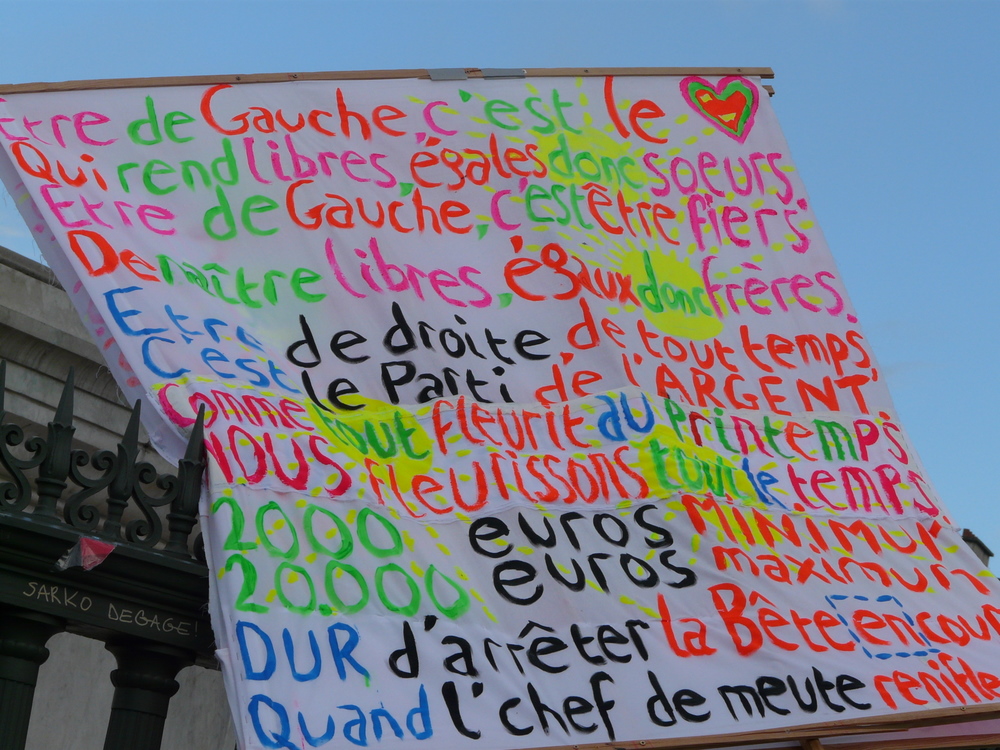 Etre de Gauche, c'est le
Qui rend libres, égales donc soeurs.
Etre de Gauche, c'est être fiers
De naître libres, égaux donc frères.
Etre de droite, de tout temps,
C'est le Parti de l'ARGENT,
Comme tout fleurit au Printemps
NOUS fleurissons tout le temps
2000 euros MINIMUM
20.000 euros maximum
DUR d'arrêter la Bête en cour
Quand l'chef de meute renifle
SARKO DEGAGE!